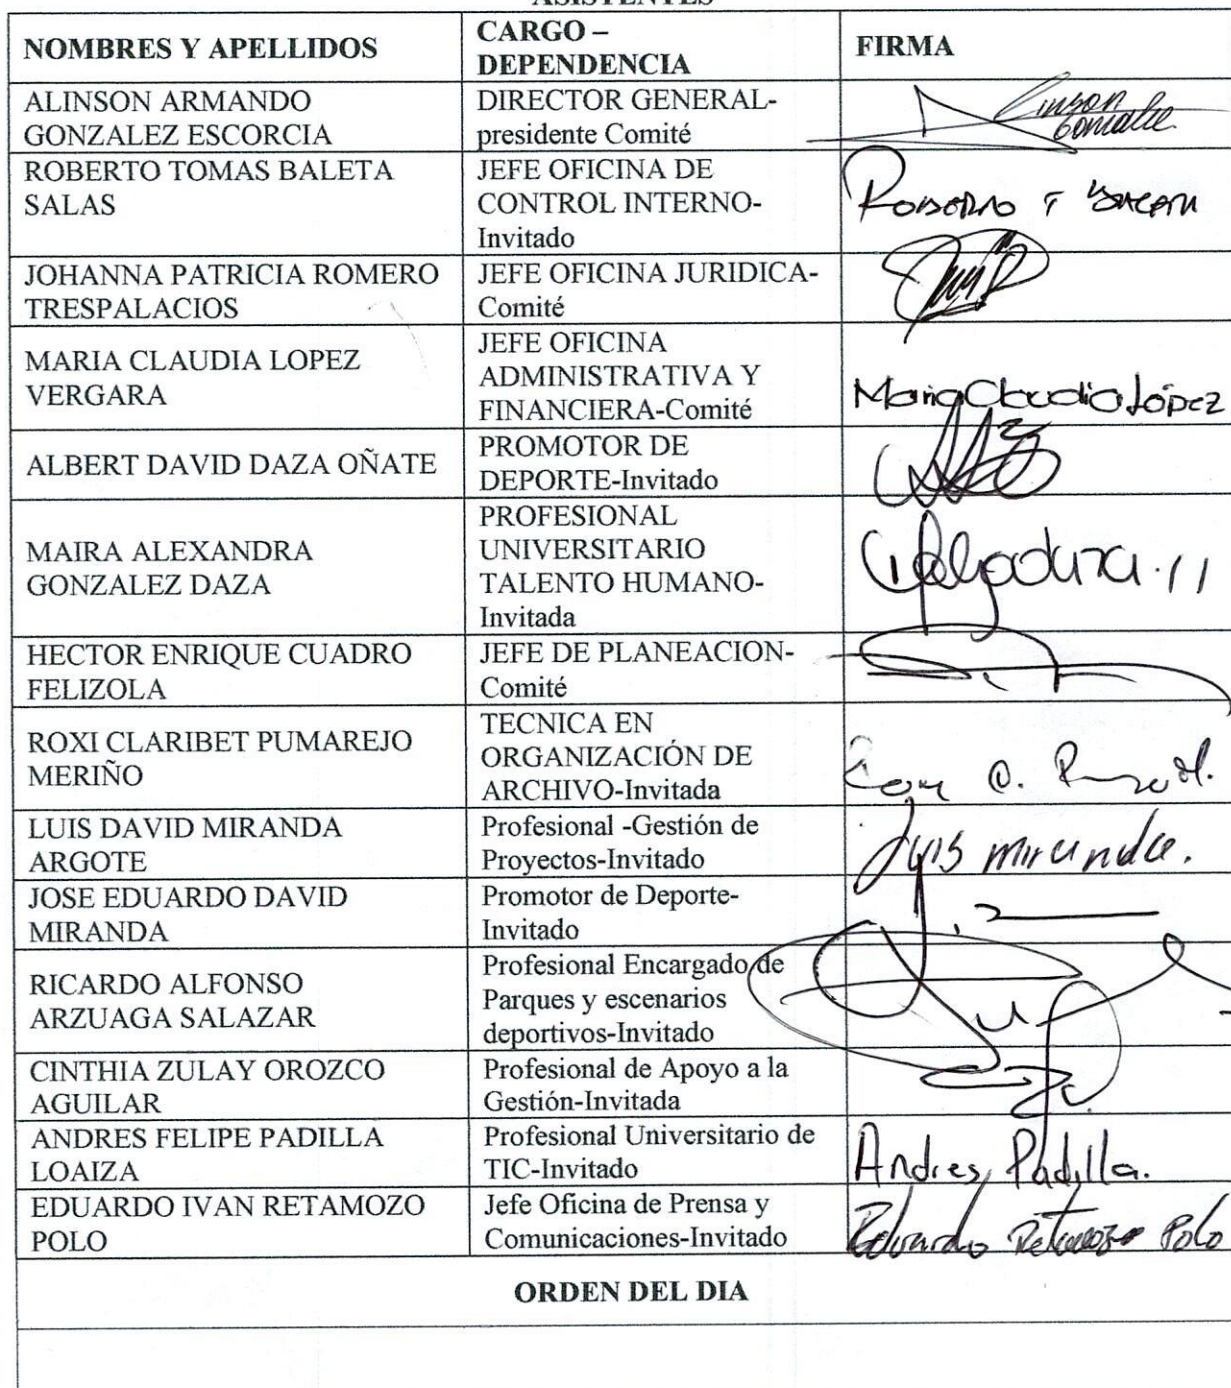 ASISTENTES
NOMBRES Y APELLIDOS
CARGO –
DEPENDENCIA
FIRMA
ALINSON ARMANDO
GONZALEZ ESCORCIA
DIRECTOR GENERAL-
presidente Comité
ROBERTO TOMAS BALETA
SALAS
JEFE OFICINA DE
CONTROL INTERNO-
Invitado
JOHANNA PATRICIA ROMERO
TRESPALACIOS
JEFE OFICINA JURIDICA-
Comité
MARIA CLAUDIA LOPEZ
VERGARA
JEFE OFICINA
ADMINISTRATIVA Y
FINANCIERA-Comité
Maria Claudia López
ALBERT DAVID DAZA OÑATE
PROMOTOR DE
DEPORTE-Invitado
MAIRA ALEXANDRA
GONZALEZ DAZA
PROFESIONAL
UNIVERSITARIO
TALENTO HUMANO-
Invitada
HECTOR ENRIQUE CUADRO
FELIZOLA
JEFE DE PLANEACION-
Comité
ROXI CLARIBET PUMAREJO
MERIÑO
TECNICA EN
ORGANIZACIÓN DE
ARCHIVO-Invitada
LUIS DAVID MIRANDA
ARGOTE
Profesional -Gestión de
Proyectos-Invitado
Luis miranda.
JOSE EDUARDO DAVID
MIRANDA
Promotor de Deporte-
Invitado
RICARDO ALFONSO
ARZUAGA SALAZAR
Profesional Encargado de
Parques y escenarios
deportivos-Invitado
CINTHIA ZULAY OROZCO
AGUILAR
Profesional de Apoyo a la
Gestión-Invitada
ANDRES FELIPE PADILLA
LOAIZA
Profesional Universitario de
TIC-Invitado
Andres Padilla.
EDUARDO IVAN RETAMOZO
POLO
Jefe Oficina de Prensa y
Comunicaciones-Invitado
Eduardo Retamozo Polo
ORDEN DEL DIA